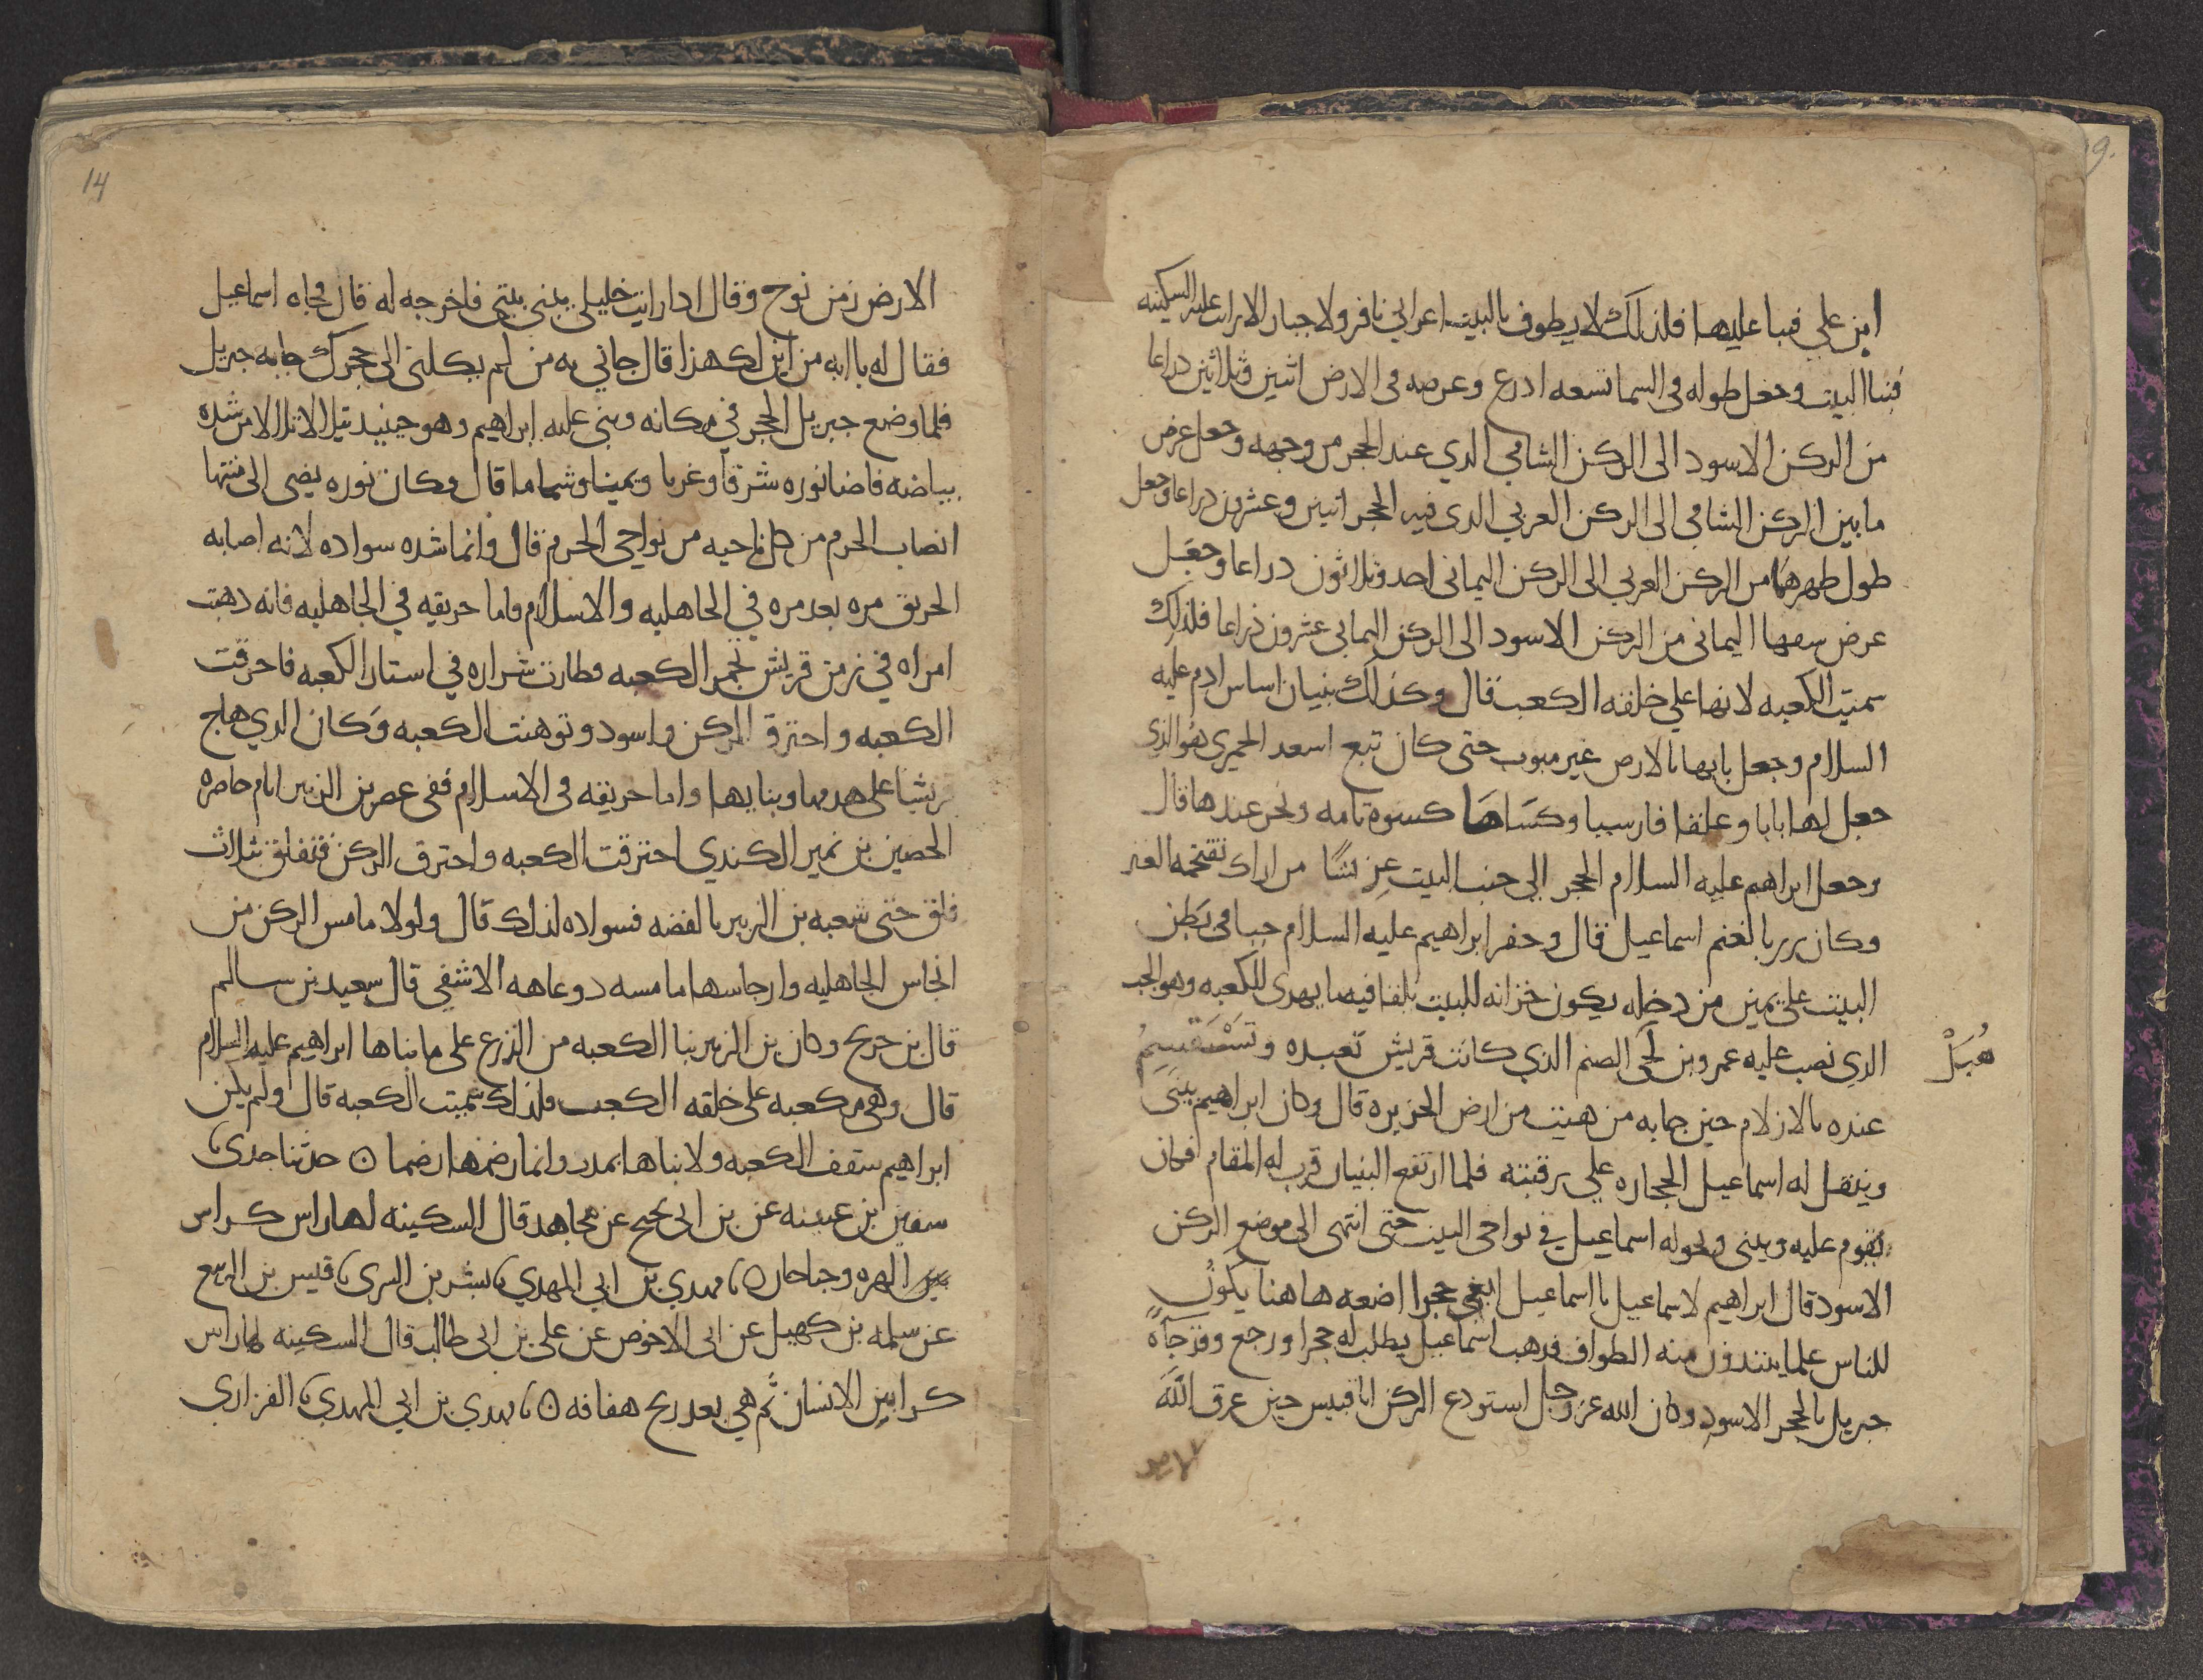 ابن علي فبنا عليها فلذلك لا يطوف بالبيت اعرابي نافر ولا جبار الا رايت عليه السكينه
فبنا البيت وجعل طوله في السما تسعه ادرع وعرضه في الارض اثنين وثلاثين دراعا
من الركن الاسود الى الركن الشامي الدي عند الحجر من وجهه وجعل عرض
ما بين الركن الشامي الى الركن الغربي الدى فيه الحجر اثنين وعشرين دراعا وجعل
طول ظهرها من الركن الغربي الى الركن اليمانى احد وثلاثون دراعا وجعل
عرض سقها اليماني من الركن الاسود الى الركن اليمانى عشرون ذراعا فلذلك
سميت الكعبه لانها علي خلقه الكعب قال وكذلك بنيان اساس ادم عليه
السلام وجعل بابها بالارض غير مبوب حتى كان تبع اسعد الحميرى هو الذي
جعل لها بابا وغلقا فارسيا وكساها كسوة تامه ونحر عندها قال
وجعل ابراهم عليه السلام الحجر الى جنب البيت عريشا من اراك تقتحمه العنز
وكان زربا لغنم اسماعيل قال وحفر ابراهيم عليه السلام جبا في بطن
البيت على يمين من دخله يكون خزانه للبيت يلقا فيه ما يهدى للكعبه وهو الجب
الدى نصب عليه عمرو بن لحى الصنم الذي كانت قريش تعبده وتستقسم
هبل
عنده بالازلام حين جا به من هيت من ارض الجزيره قال وكان ابراهيم يبنى
وينقل له اسماعيل الحجاره علي رقبته فلما ارتفع البنيان قرب له المقام فكان
يقوم عليه ويبنى ويحوله اسماعيل في نواحى البيت حتى انتهى الى موضع الركن
الاسود قال ابراهيم لاسماعيل يا اسماعيل ابغى حجرا اضعه هاهنا يكون
للناس علما يبتدون منه الطواف فدهب اسماعيل يطلب له حجرا ورجع وقد جاه
جبريل بالحجر الاسود وكان الله عز وجل استودع الركن ابا قبيس حين غرق الله
الارض
الارض زمن نوح وقال ادا رايت خليلي يبنى بيتي فاخرجه له قال فجاه اسماعيل
فقال له يا ابه من اين لك هذا قال جاني به من لم يكلنى الى حجرك جا به جبريل
فلما وضع جبريل الحجر في مكانه وبنى عليه ابراهيم وهو حينيد يتلالا تلالا من شده
بياضه فاضا نوره شرقا وغربا ويمينا وشماما قال وكان نوره يضى الى منتها
انصاب الحرم من كل ناحيه من نواحي الحرم قال وانما شده سواده لانه اصابه
الحريق مره بعد مره في الجاهليه والاسلام فاما حريقه في الجاهليه فانه دهبت
امراه في زمن قريش تجمر الكعبه فطارت شراره في استار الكعبه فاحرقت
الكعبه واحترق الركن واسود وتوهنت الكعبه وكان الدي هاج
قريشا على هدمها وبنايها واما حريقه في الاسلام ففى عصر بن الزبير ايام حاصره
الحصين بن نمير الكندي احترقت الكعبه واحترق الركن فتفلق ثلاث
فلق حتى شعبه بن الزبير بالفضه فسواده لذلك قال ولولا ما مس الركن من
انجاس الجاهليه وارجاسها ما مسه دو عاهه الا شفى قال سعيد بن سالم
قال بن جريج وكان بن الزبير بنا الكعبه من الذرع على ما بناها ابراهيم عليه السلام
قال وهي مكعبه على خلقه الكعب فلذلك سميت الكعبه قال ولم يكن
ابراهيم سقف الكعبه ولا بناها بمدر وانما رضمها رضما ۞ حدثنا جدي نا
سفين بن عيينه عن بن ابي نجيح عن مجاهد قال السكينه لها راس كراس
الهره وجناحان ۞ نا مهدي بن ابي المهدي نا بشر بن السرى نا قيس بن الربيع
عن سلمه بن كهيل عن ابى الاحوص عن على بن ابى طالب قال السكينه لها راس
كراس الانسان ثم هي بعد ريح هفافه ۞ نا مهدي بن ابي المهدي نا الفزاري
14